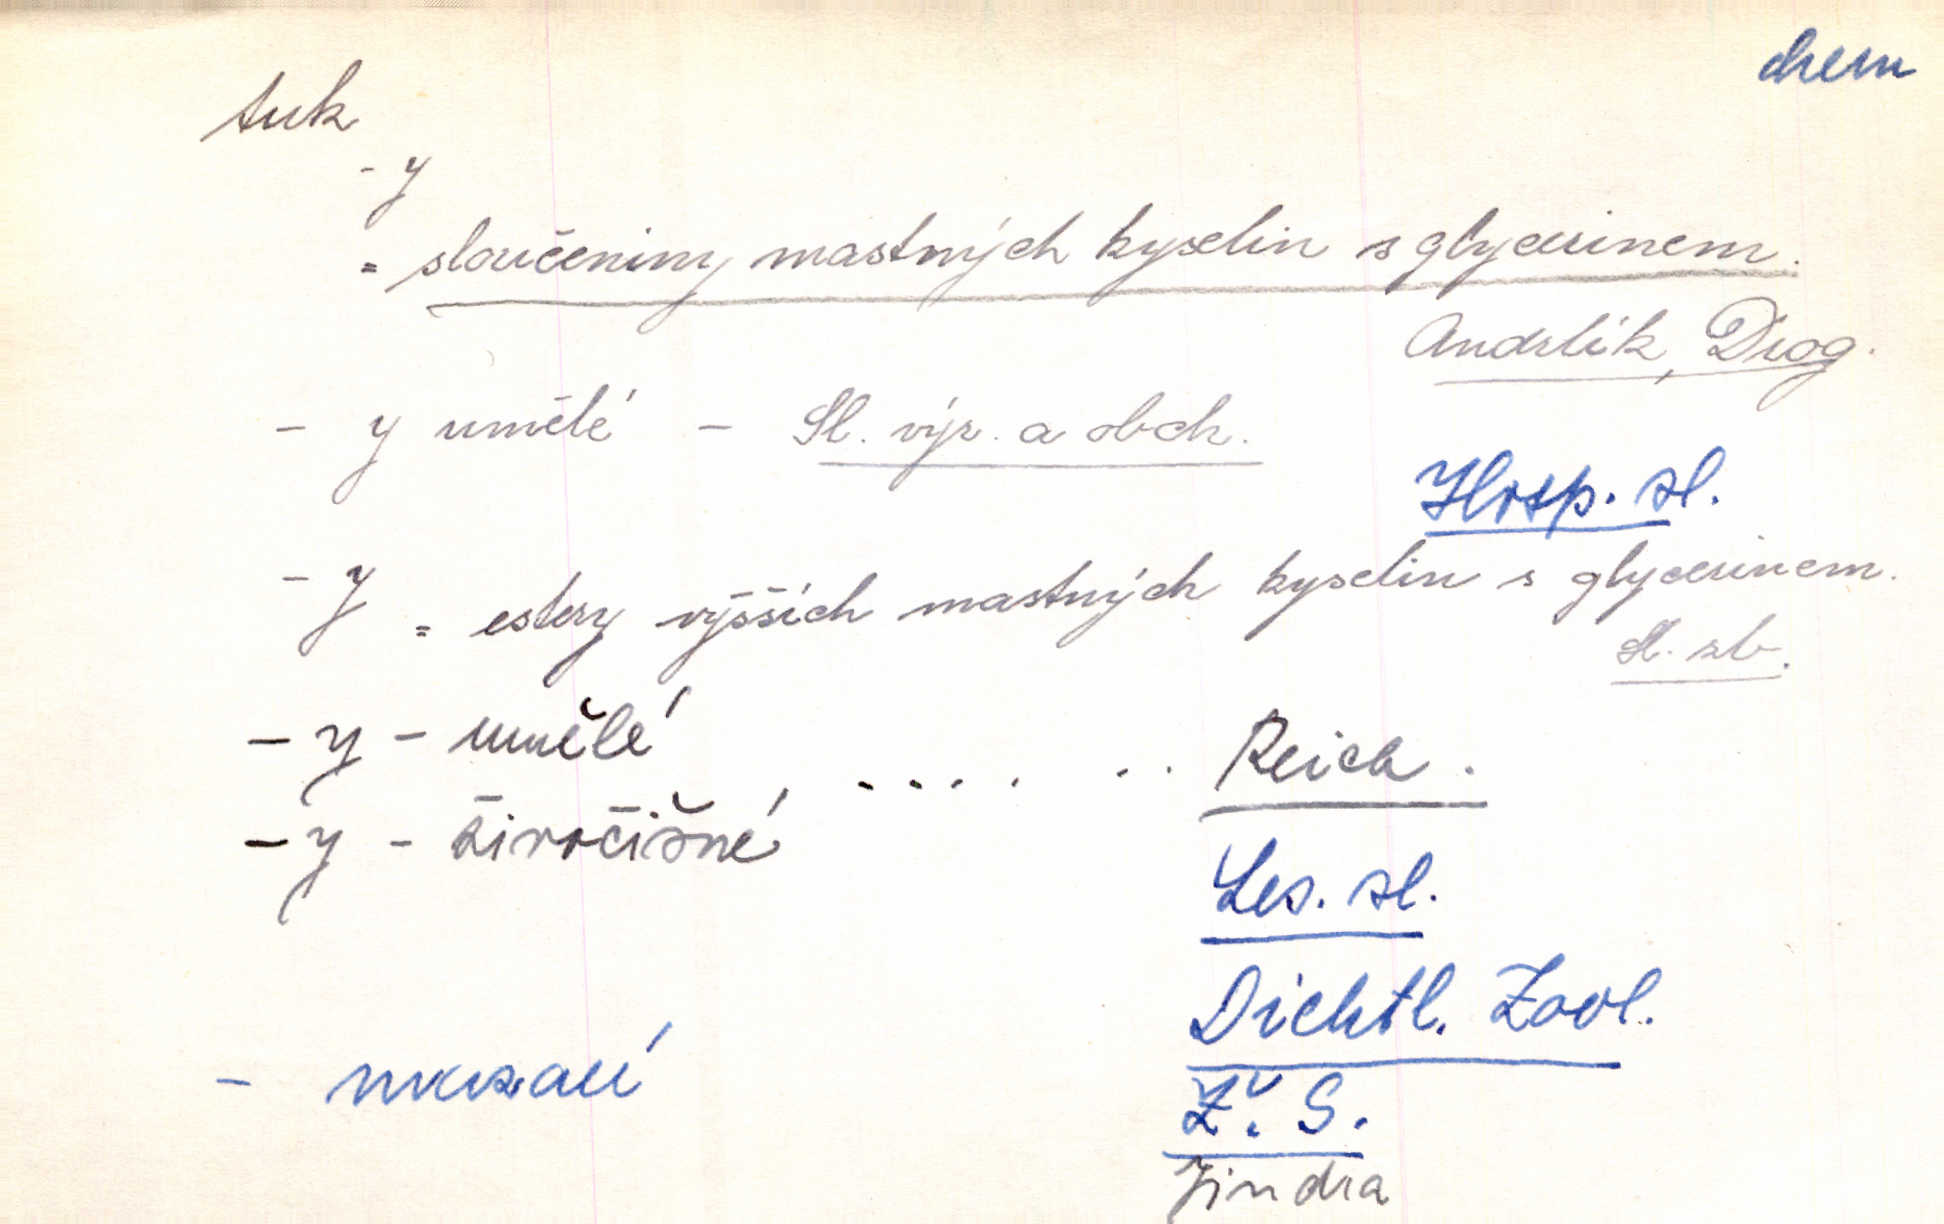 chem
tuk
- y
= sloučeniny mastných kyselin s glycerinem.
Andrlík, Drog.
- y umělé - Sl. výr. a obch.
Hosp. sl.
- y = estery vyšších mastných kyselin s glycerinem.
Sl. zb.
- y - umělé
.... .. Reich.
- y - živočišné
Les. sl.
Dichtl. Zool.
- mazací
Ž. S.
Jindra